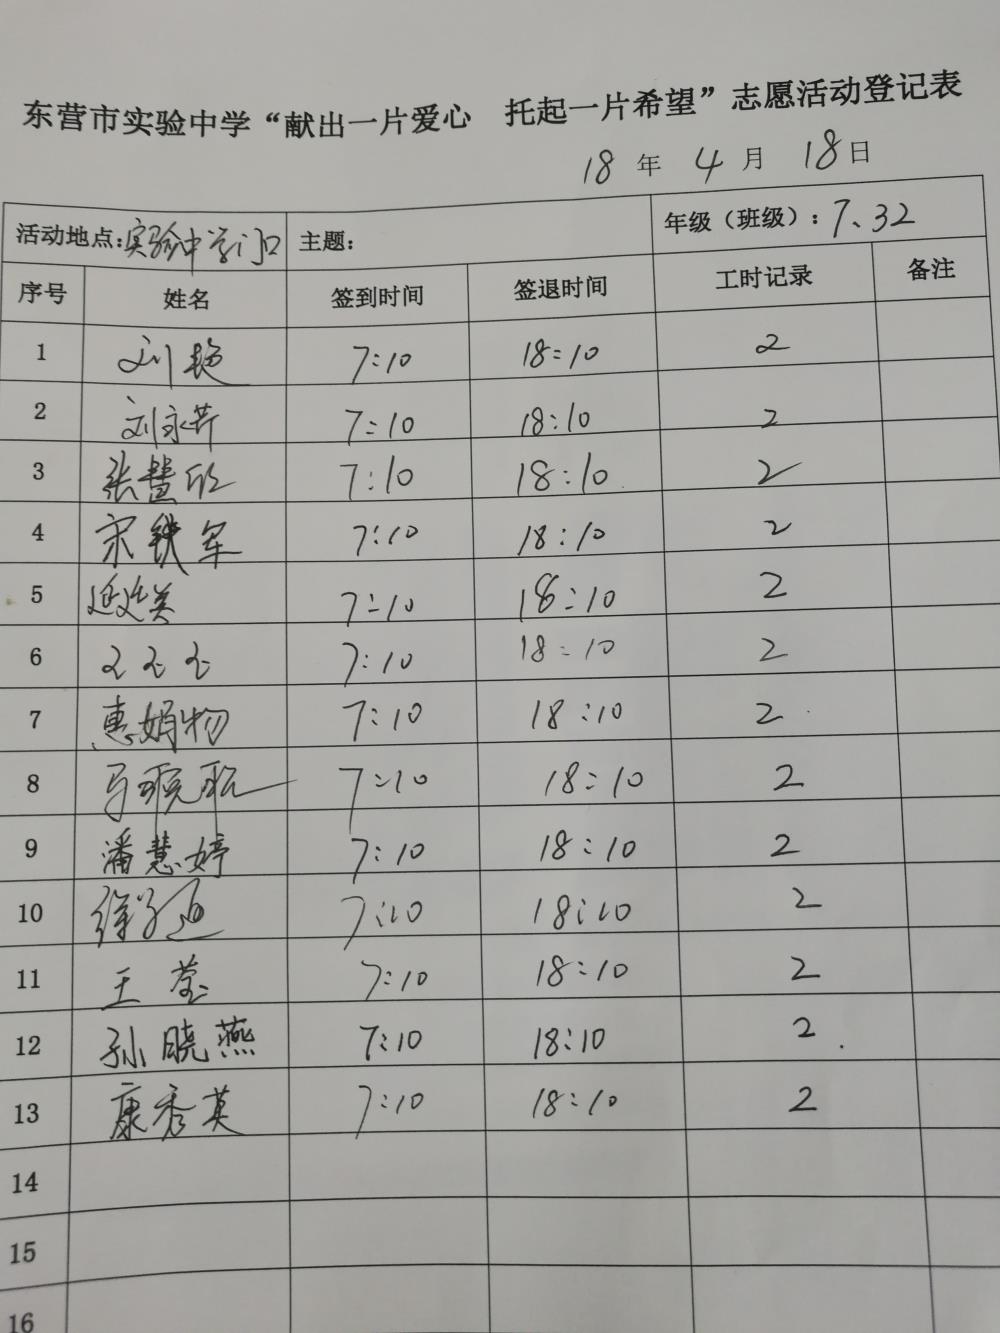 东营市实验中学“献出一片爱心 托起一片希望”志愿活动登记表
18年 4月 18日
活动地点:实验中学门口 主题: 年级（班级）: 7.32
序号 姓名 签到时间 签退时间 工时记录 备注
1 刘艳 7:10 18:10 2
2 刘永芹 7:10 18:10 2
3 张慧欣 7:10 18:10 2
4 宋铁军 7:10 18:10 2
5 7:10 18:10 2
6 7:10 18:10 2
7 惠娟 7:10 18:10 2
8 7:10 18:10 2
9 潘慧婷 7:10 18:10 2
10 徐 7:10 18:10 2
11 王莹 7:10 18:10 2
12 孙晓燕 7:10 18:10 2
13 康秀英 7:10 18:10 2
14
15
16